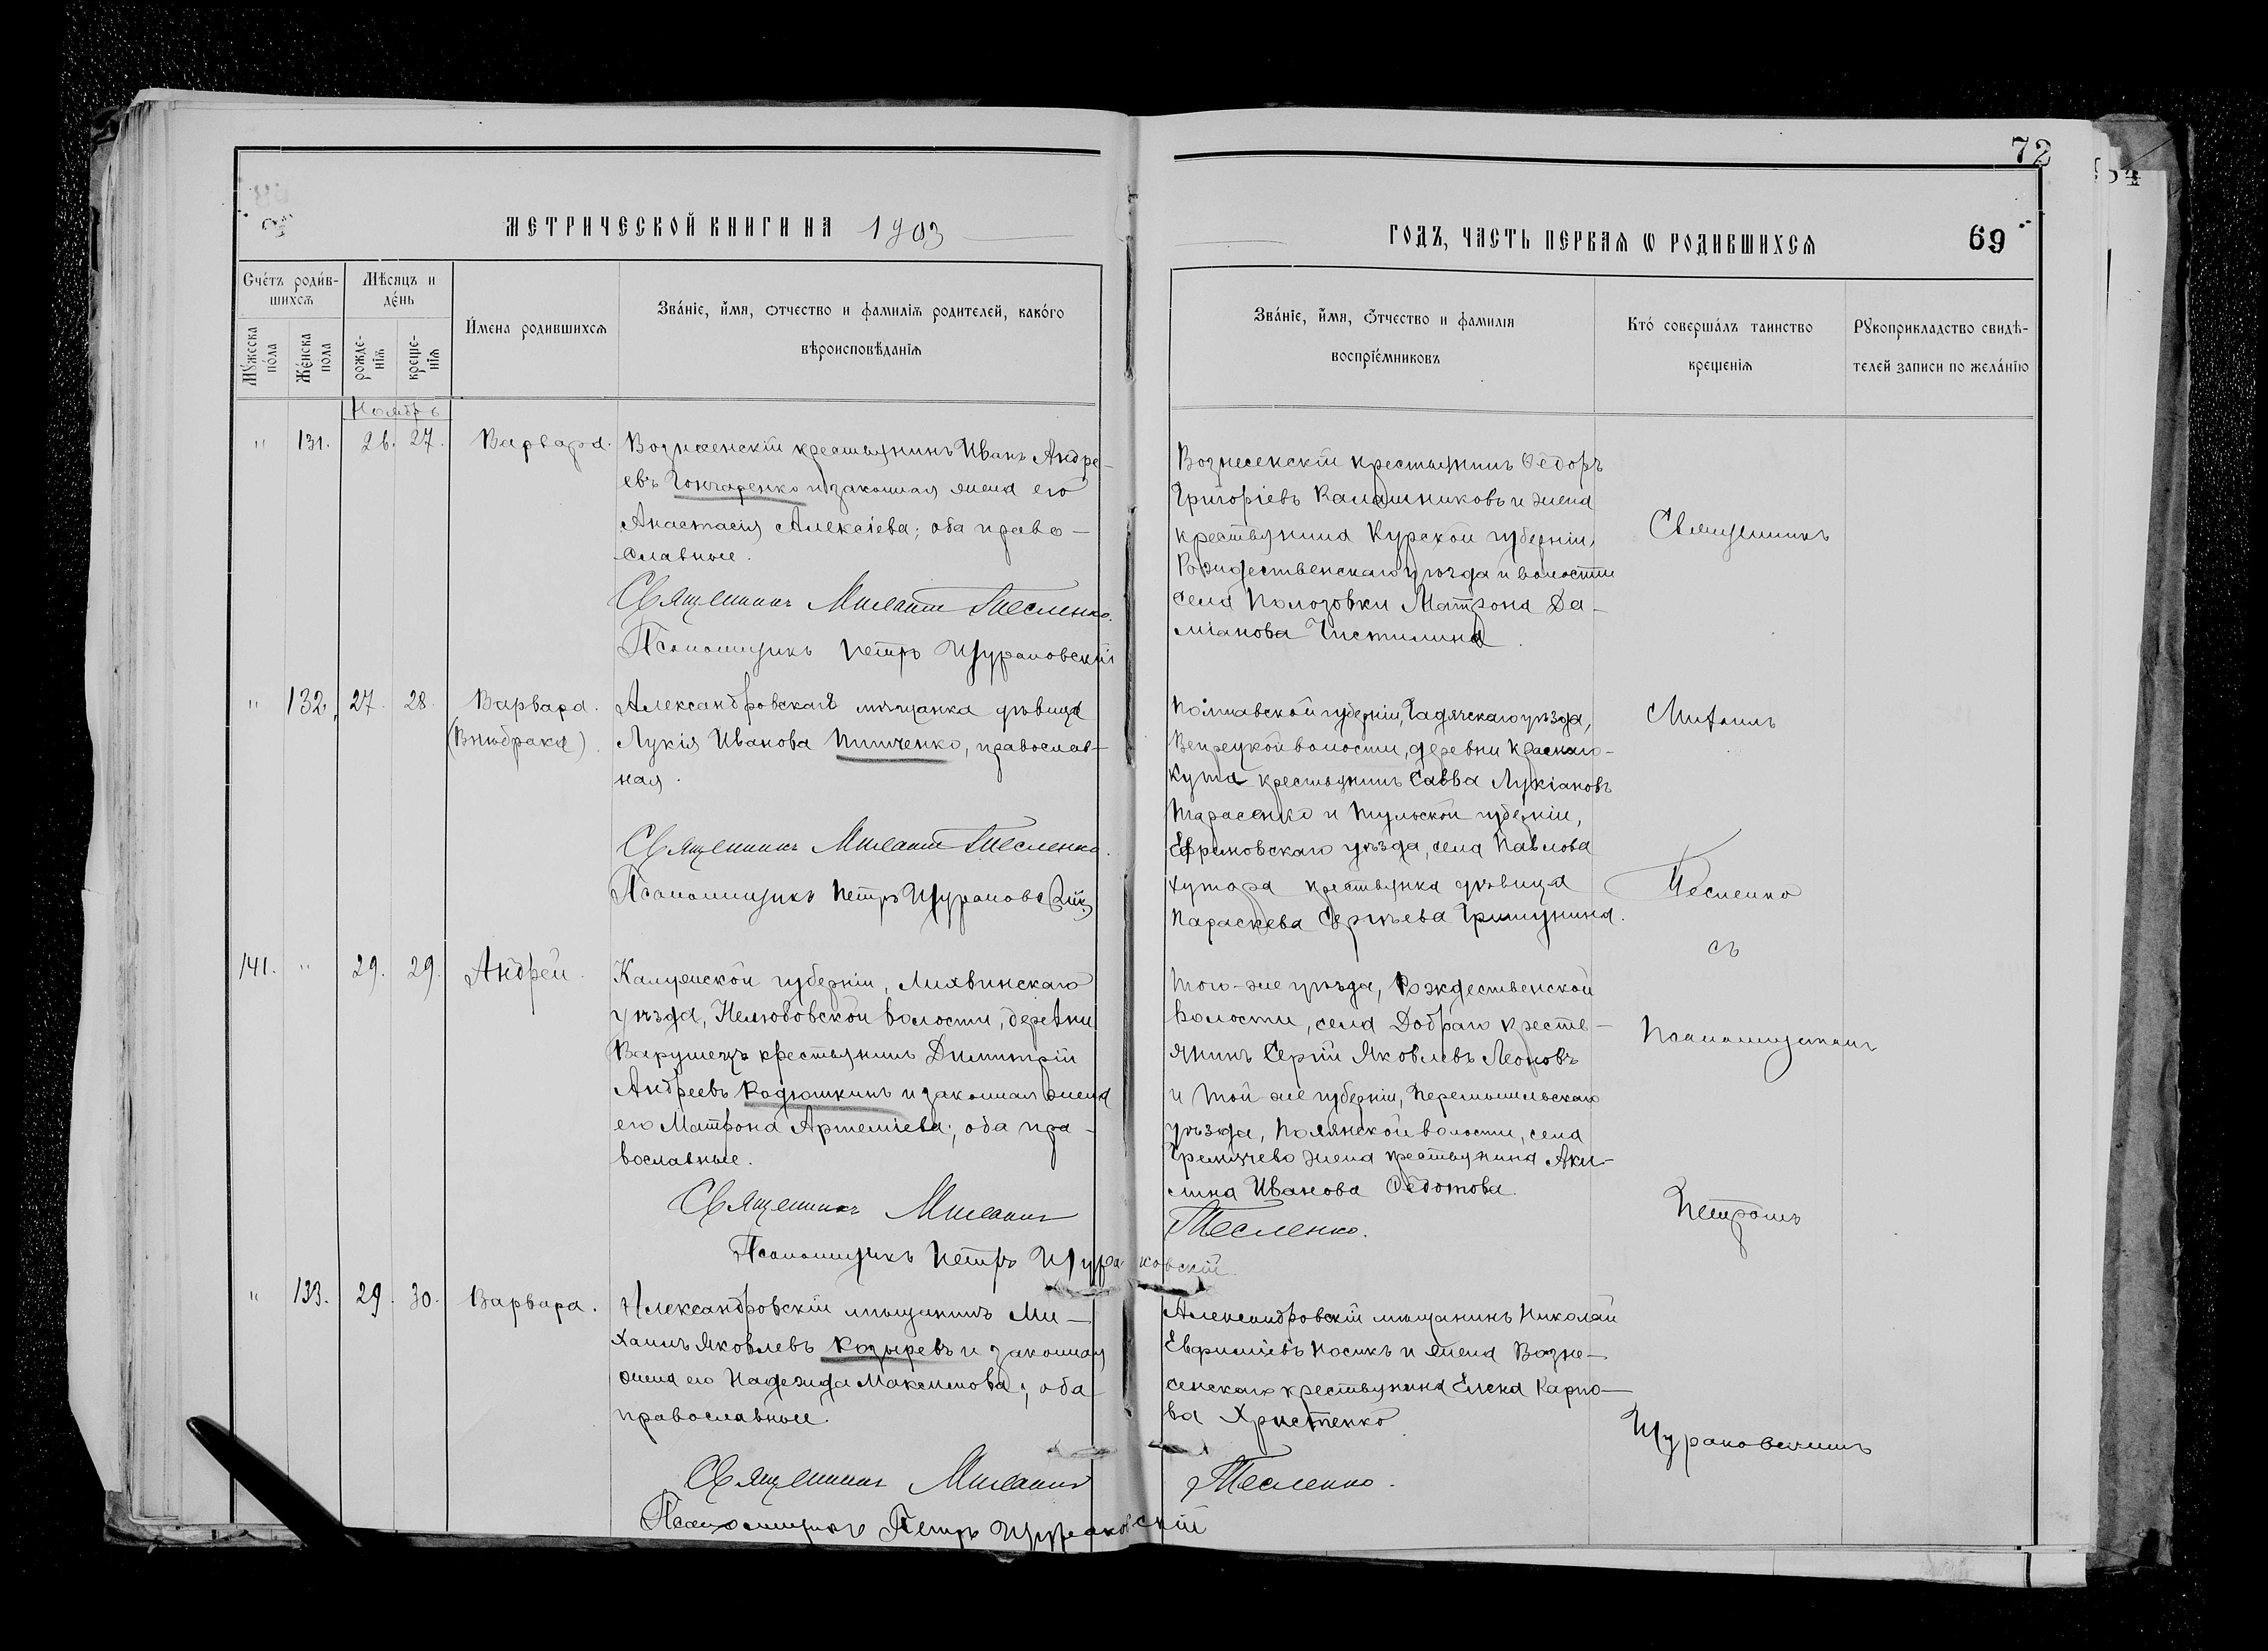 72
МЕТРИЧЕСКОЙ КНИГИ НА 1903
ГОДЪ, ЧАСТЬ ПЕРВАѦ Ѡ РОДИВШИХСѦ
69
Счéтъ роди́в-
шихсѧ
Мѣсяцъ и
де́нь
Мꙋжеска
по́ла
Же́нска
пола
рожде-
нїѧ
креще-
нїѧ
И́мена родившихсѧ
Зва́нїе, и́мя, ѻтчество и фамилїѧ родителей, како́го
вѣроисповѣ́данїѧ
Зва́нїе, и́мя, ѻ́тчество и фамилїя
воспрїе́мниковъ
Кто́ соверша́лъ таинство
крещенїѧ
Рꙋкоприкладство свидѣ-
телей записи по жела́нїю
Ноябрь
" 131. 26. 27. Варвара.
Вознесенскій крестьянинъ Иванъ Андре-
евъ Гончаренко и законная жена его
Анастасія Алексіева; оба право-
славные.
Священникъ Милетій Тесленко.
Псаломщикъ Петръ Щураковскій
Вознесенскій крестьянинъ Ѳедоръ
Григоріевъ Калашниковъ и жена
крестьянина Курской губерніи,
Рождественскаго уѣзда и волости
села Полозовки Матрона Да-
міанова Чистилина
" 132. 27. 28. Варвара.
(Внѣбрака).
Александровская мѣщанка дѣвица
Лукія Иванова Пимченко, православ-
ная.
Священникъ Милетій Тесленко.
Псаломщикъ Петръ Щураковскій
Полтавской губерніи, Гадячскаго уѣзда,
Веприцкой волости, деревни Краснаго-
Кута крестьянинъ Савва Лукіановъ
Тарасенко и Тульской губерніи,
Ефремовскаго уѣзда, села Павлова
Хутора крестьянка дѣвица
Параскева Сергѣева Гришунина.
141. " 29. 29. Андрей.
Калужской губерніи, Лихвинскаго
уѣзда, Нелюбовской волости, деревни
Варушецъ крестьянинъ Димитрій
Андреевъ Кадюшкинъ и законная жена
его Матрона Артеміева; оба пра-
вославные.
Священникъ Милетій Тесленко.
Псаломщикъ Петръ Щураковскій
Того-же уѣзда, Рождественской
волости, села Добраго кресть-
янинъ Сергій Яковлевъ Леоновъ
и той-же губерніи, Перемышльскаго
уѣзда, Полянской волости, села
Гремячево жена крестьянина Аки-
лина Иванова Ѳедотова.
" 133. 29. 30. Варвара.
Александровскій мѣщанинъ Ми-
хаилъ Яковлевъ Козыревъ и законная
жена его Надежда Максимова; оба
православные.
Священникъ Милетій Тесленко.
Псаломщикъ Петръ Щураковскій
Александровскій мѣщанинъ Николай
Евфиміевъ Носикъ и жена Возне-
сенскаго крестьянина Елена Карпо-
ва Христенко
Священникъ
Тесленко
съ
Псаломщикомъ
Петромъ
Щураковскимъ